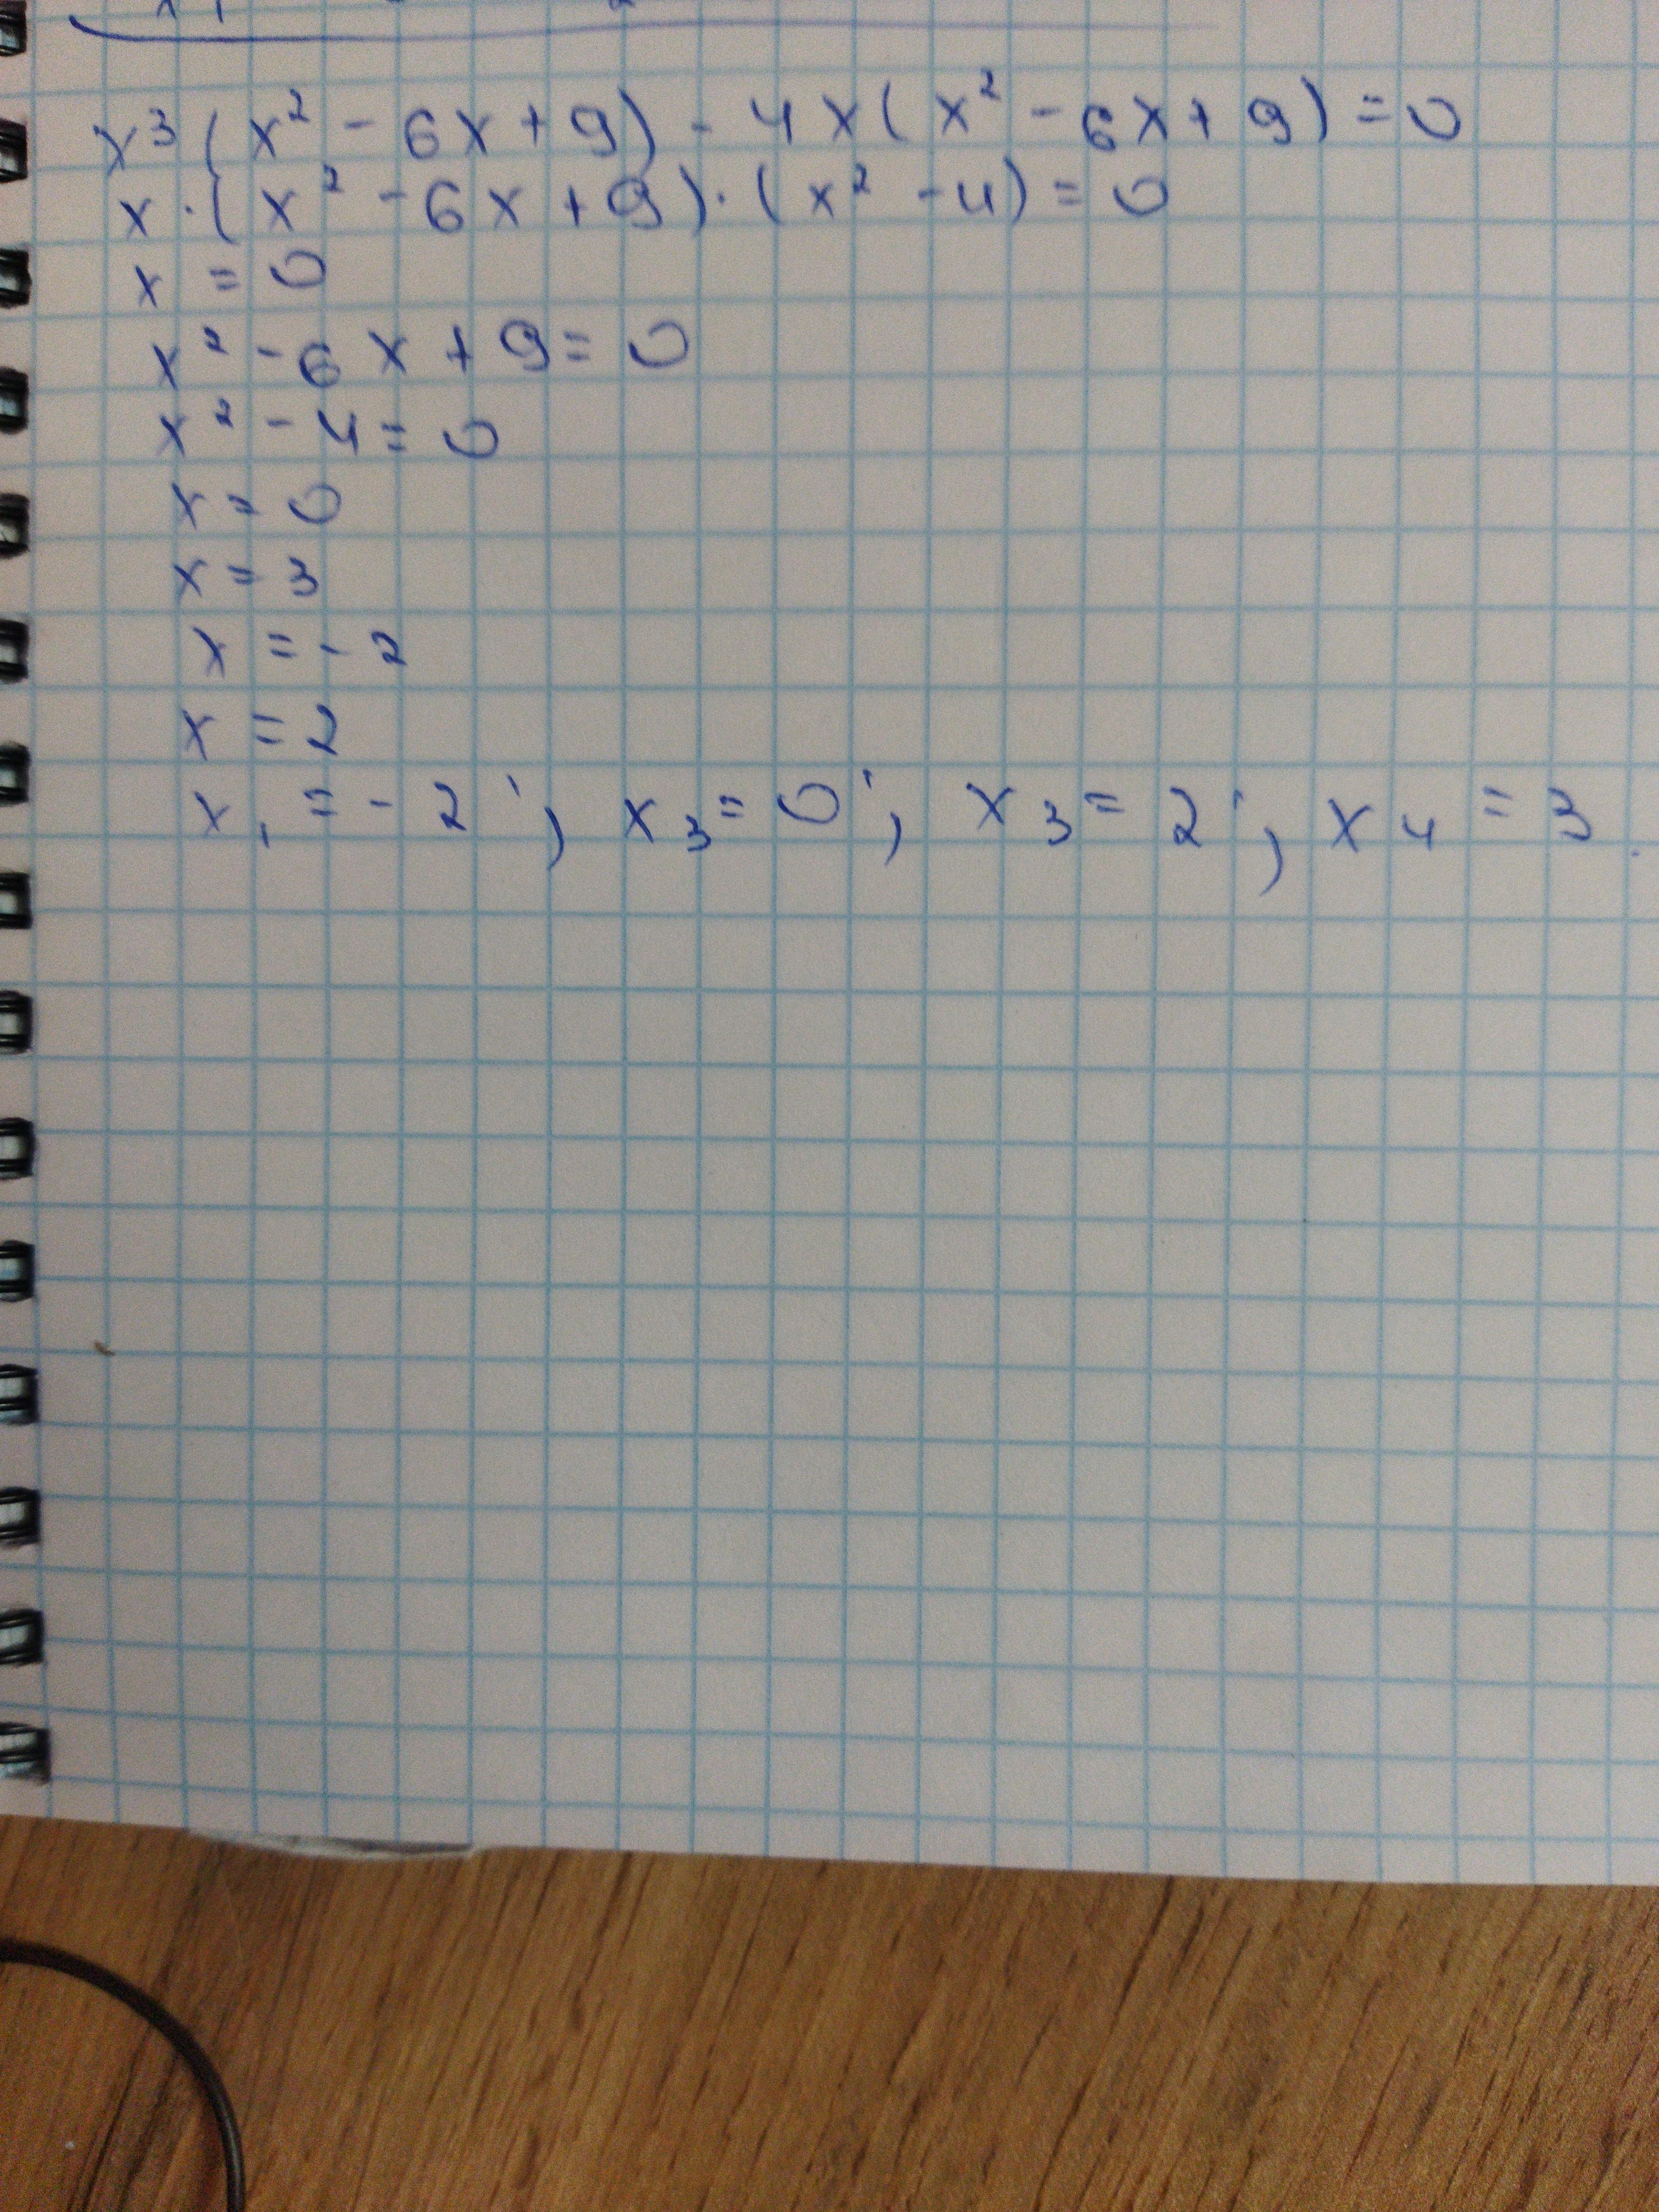 x³(x² - 6x + 9) - 4x(x² - 6x + 9) = 0
x·(x² - 6x + 9)·(x² - 4) = 0
x = 0
x² - 6x + 9 = 0
x² - 4 = 0
x = 0
x = 3
x = - 2
x = 2
x₁ = - 2 ; x₃ = 0 ; x₃ = 2 ; x₄ = 3.